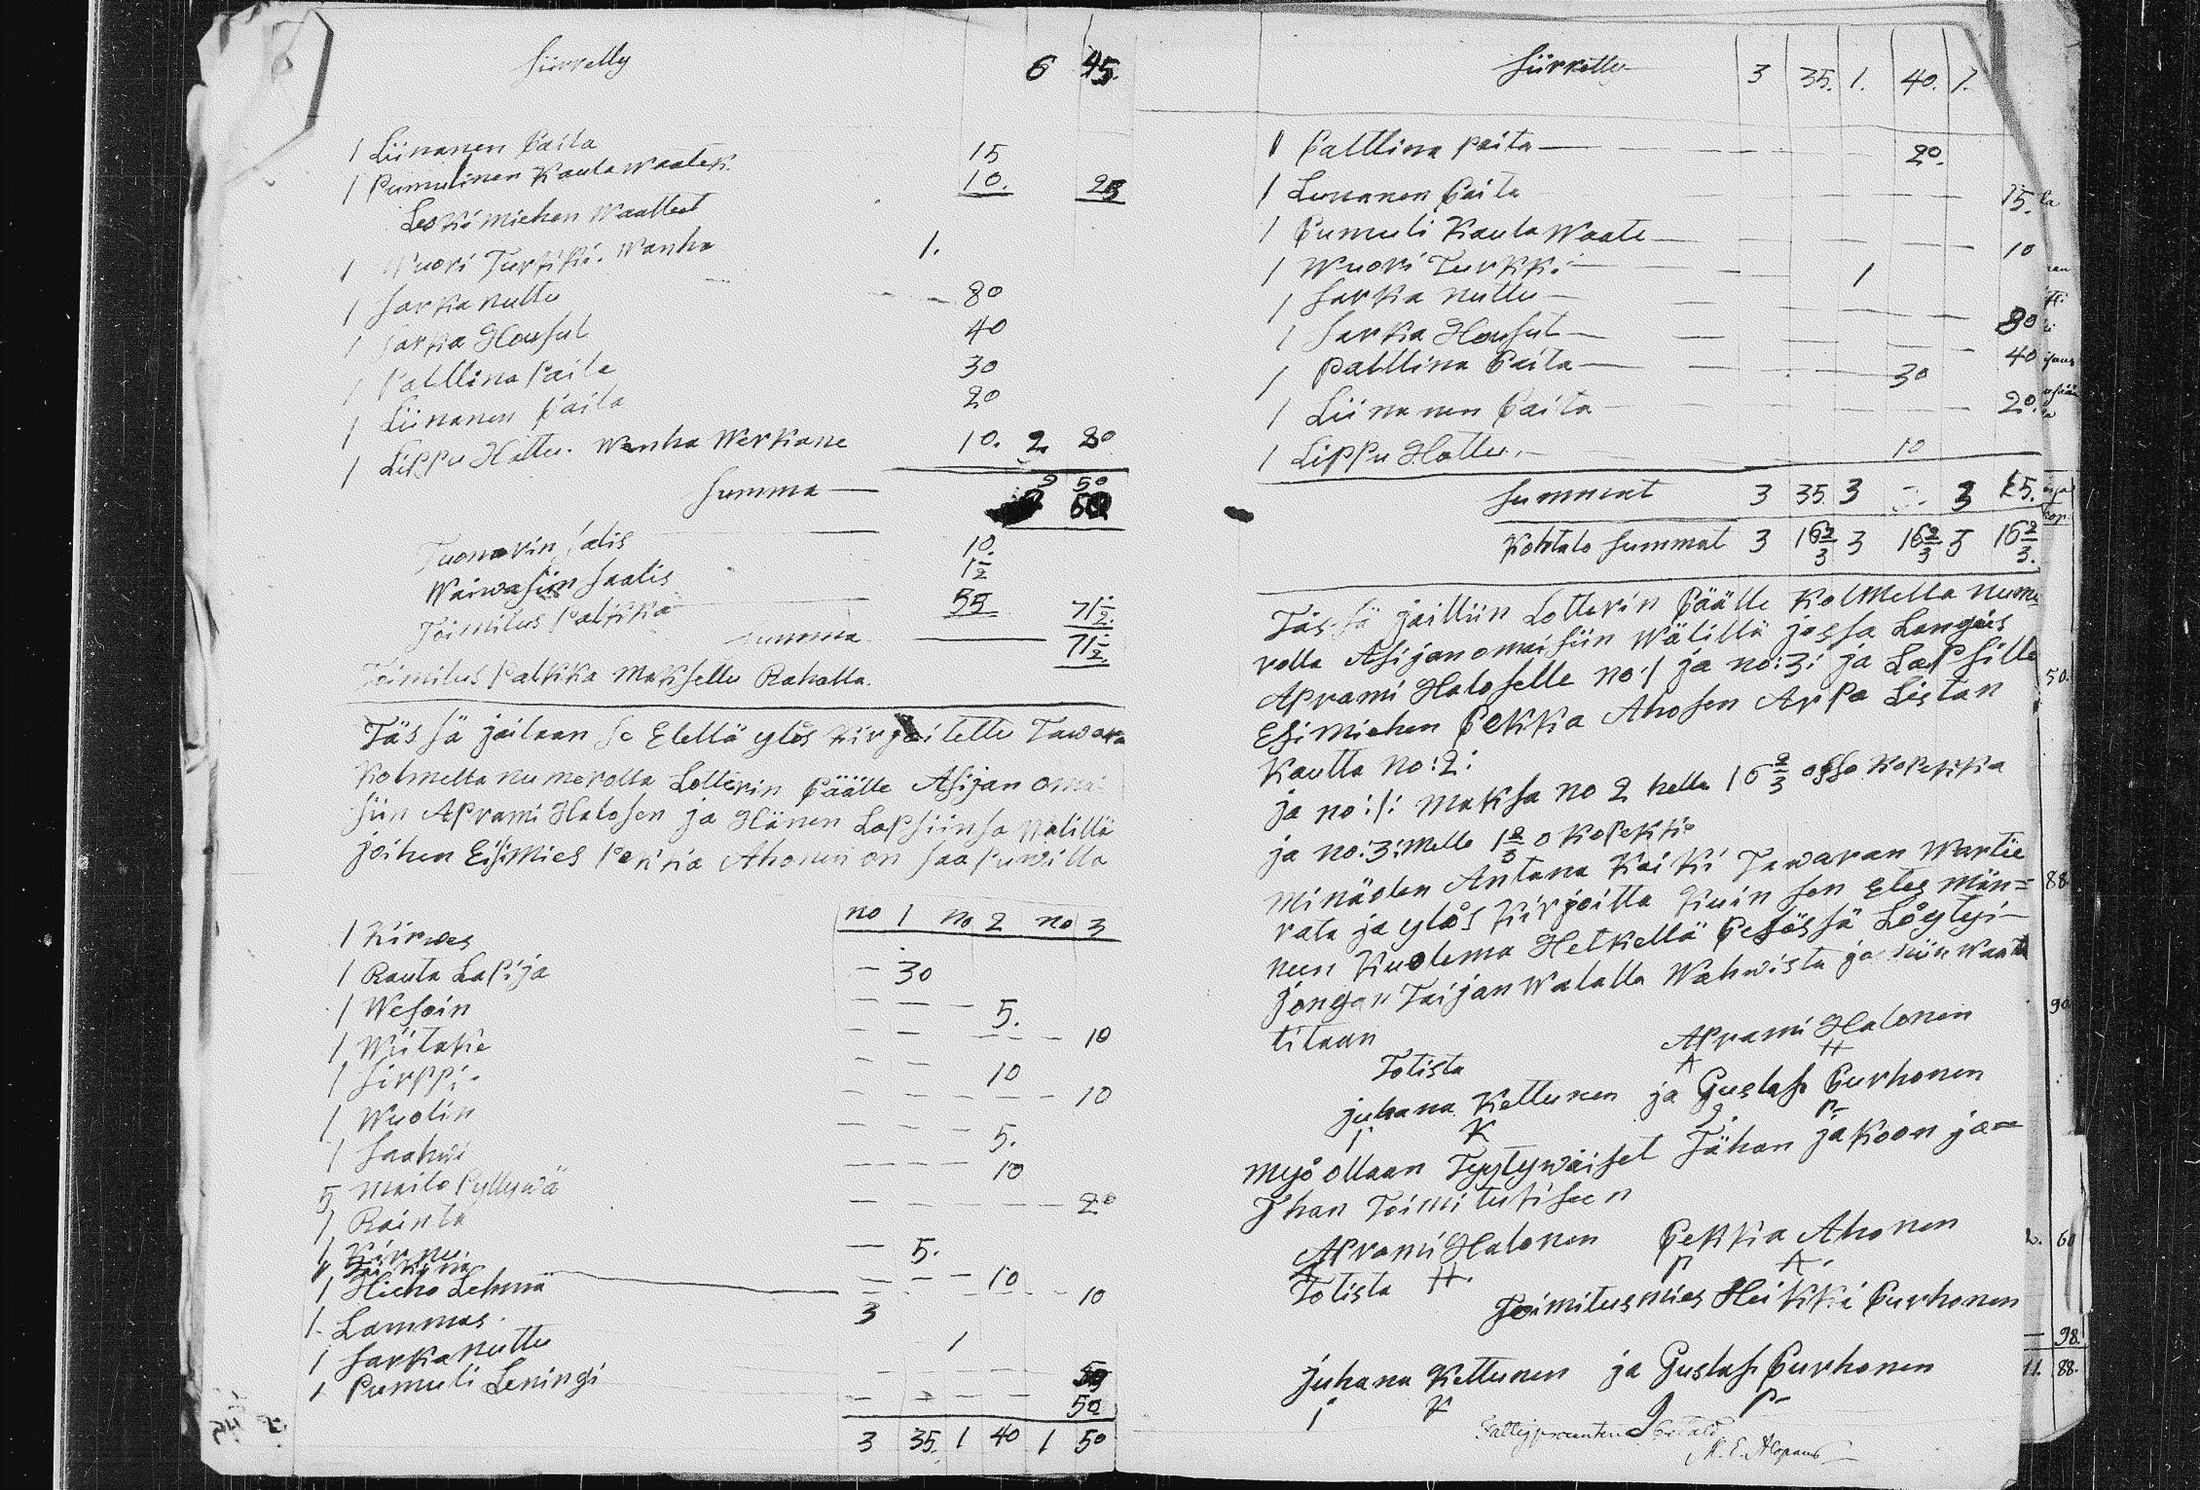 Siirretty 6 45.
1 Liinanen Paita 15
1 Pumulinen Kaula Waatek 10. 25
Leski miehen Waatteet
1 Wuori Turkki. Wanha 1.
1 Sarka nuttu 80
1 Sarka Housut 40
1 Palttina Paita 30
1 Liinanen Paita 20
1 Lippu Hattu. Wanha Werkane 10. 2. 80
Summa 9 50
Tuomarin Salis 10.
Waiwasiin Saalis 1 1/2
Toimitus Palkka 55 71 1/2.
Summa 71 1/2.
Toimitus Palkka Maksettu Rahalla.
Täs sä jaitaan se Elettä ylös Kirjoitettu Tawara
Kolmella numerolla Lotterin Päälle Asijan omai
siin Aprami Halosen ja Hänen Lapsiinsa Wälillä
joihen Esimies Pekka Ahonen on Saapuwilla
no 1 no 2 no 3
1 Kirwes
1 Rauta Lapija 30
1 Wesoin 5.
1 Wiitake 10
1 Sirppi. 10
1 Wuolin 10
1 Saahwi 5.
5 Maito Pyttywä 10
1 Rainta 20
1 Kirnu. 5.
1 Hieho Lehmä 10
1. Lammas. 3 10
1 Sarka nuttu 1
1 Pumuli Leningi 50
3 35. 1 40 1 50
Siirretty 3 35. 1. 40. 1.
1 Palttina Paita 20.
1 Liinanen Paita 15.
1 Pumuli Kaula Waate 10
1 Wuori Turkki 1
1 Sarka nuttu 80
1 Sarka Housut 40
1 Palttina Paita 30
1 Liinanen Paita 20.
1 Lippu Hattu. 10
Summat 3 35 3 3 15.
Kohtalo Summat 3 16 2/3 3 16 2/3 3 16 2/3.
Täs sä jaittiin Lotterin Päälle Kolmella nume
rolla Asijanomaisiin Wälillä jossa Langeis
Aprami Haloselle no:1 ja no:3: ja Lapsille
Esimiehen Pekka Ahosen Arpa Listan
Kautta no:2:
ja no:1: Maksa no 2 helle 16 2/3 osso Kopekka
ja no:3:melle 1 2/3 0 Kopekka
Minäolen Antana Kaikki Tawaran Wartie
rata ja ylös Kirjoitta Kuin sen Eles män=
neen Kuolema Hetkellä Pesässä Löytyi
jongan Taijan Walalla Wahwista ja niin Waat
titaan Aprami Halonen
Totista A H
juhana Kettunen ja Gustaf Purhonen
I K g P
Myö ollaan Tyytywäiset Tähan jakoon ja=
Ihan Toimitukiseen
Aprami Halonen Pekka Ahonen
A H. P A.
Totista
Toimitusmies Heikki Purhonen
Juhana Kettunen ja Gustaf Purhonen
I K P
50.
88.
90
60
98.
11. 88.